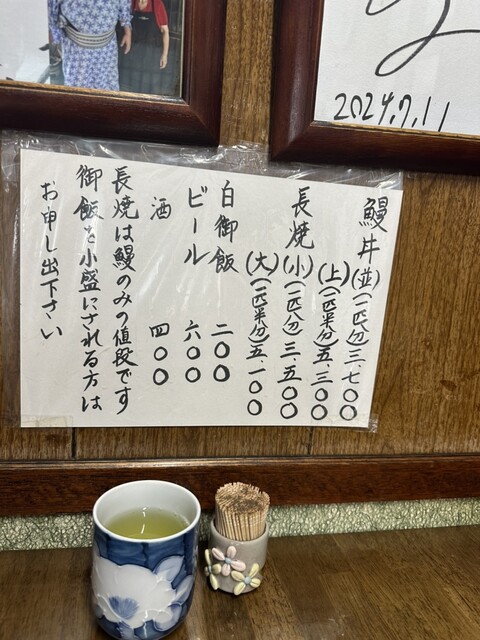 2024.7.11
鰻丼(並)(一匹分)三.七〇〇
(上)(一匹半分)五.三〇〇
長焼(小)(一匹分)三.五〇〇
(大)(一匹半分)五.一〇〇
白御飯 二〇〇
ビール 六〇〇
酒 四〇〇
長焼は鰻のみの値段です
御飯を小盛にされる方は
お申し出下さい